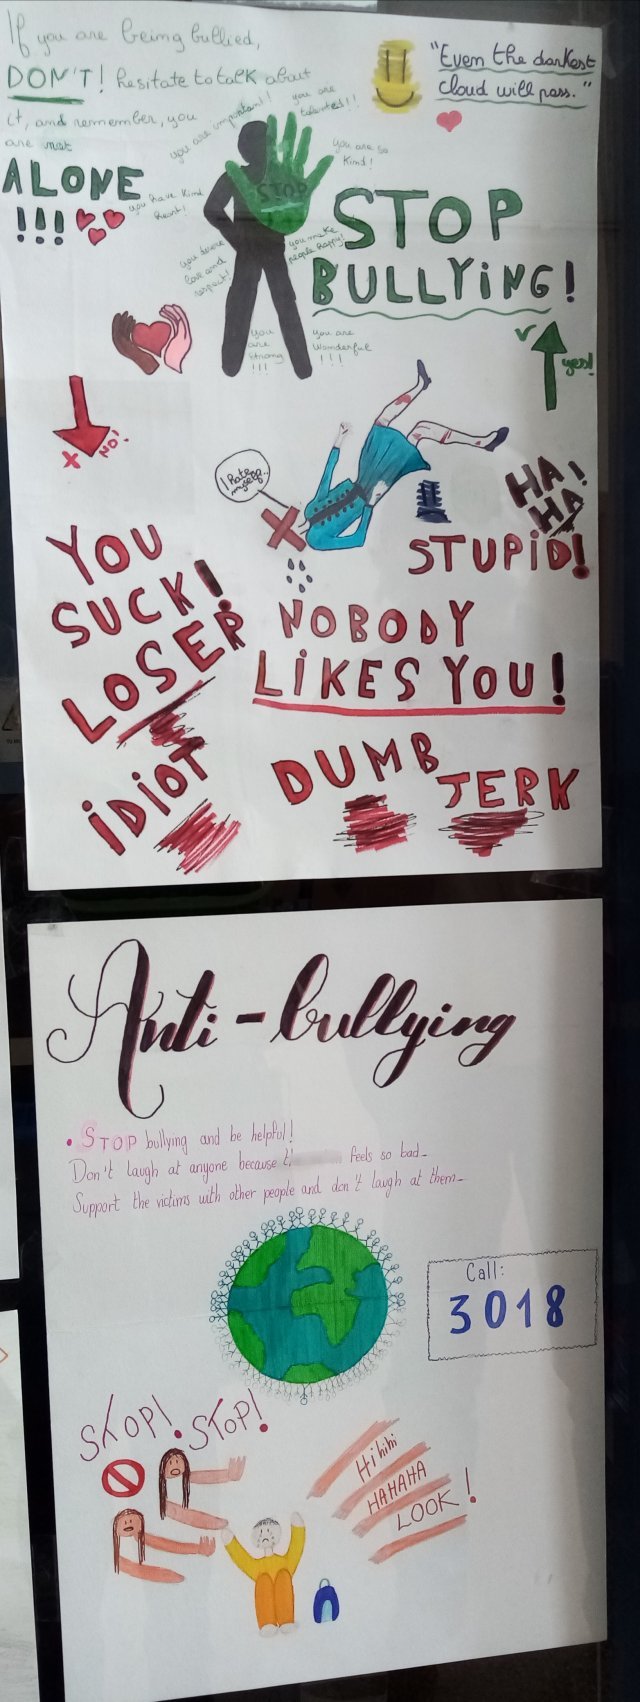 If you are being bullied,
DON'T! hesitate to talk about
it, and remember, you
are not
ALONE
!!!
"Even the darkest
cloud will pass."
you are important!!
you are
talented!!!
you are so
kind!
STOP
you have kind
heart!
you deserve
love and
respect!
you make
people happy!
you
are
strong
!!!
you are
wonderful
!!!
STOP
BULLYING!
yes!
X NO!
I hate
myself...
HA!
HA
STUPID!
YOU
SUCK!
LOSER
NOBODY
LIKES YOU!
IDIOT
DUMB
JERK
Anti-bullying
• STOP bullying and be helpful!
Don't laugh at anyone because feels so bad_
Support the victims with other people and don't laugh at them_
Call:
3018
STOP! STOP!
Hihihi
HAHAHA
LOOK!